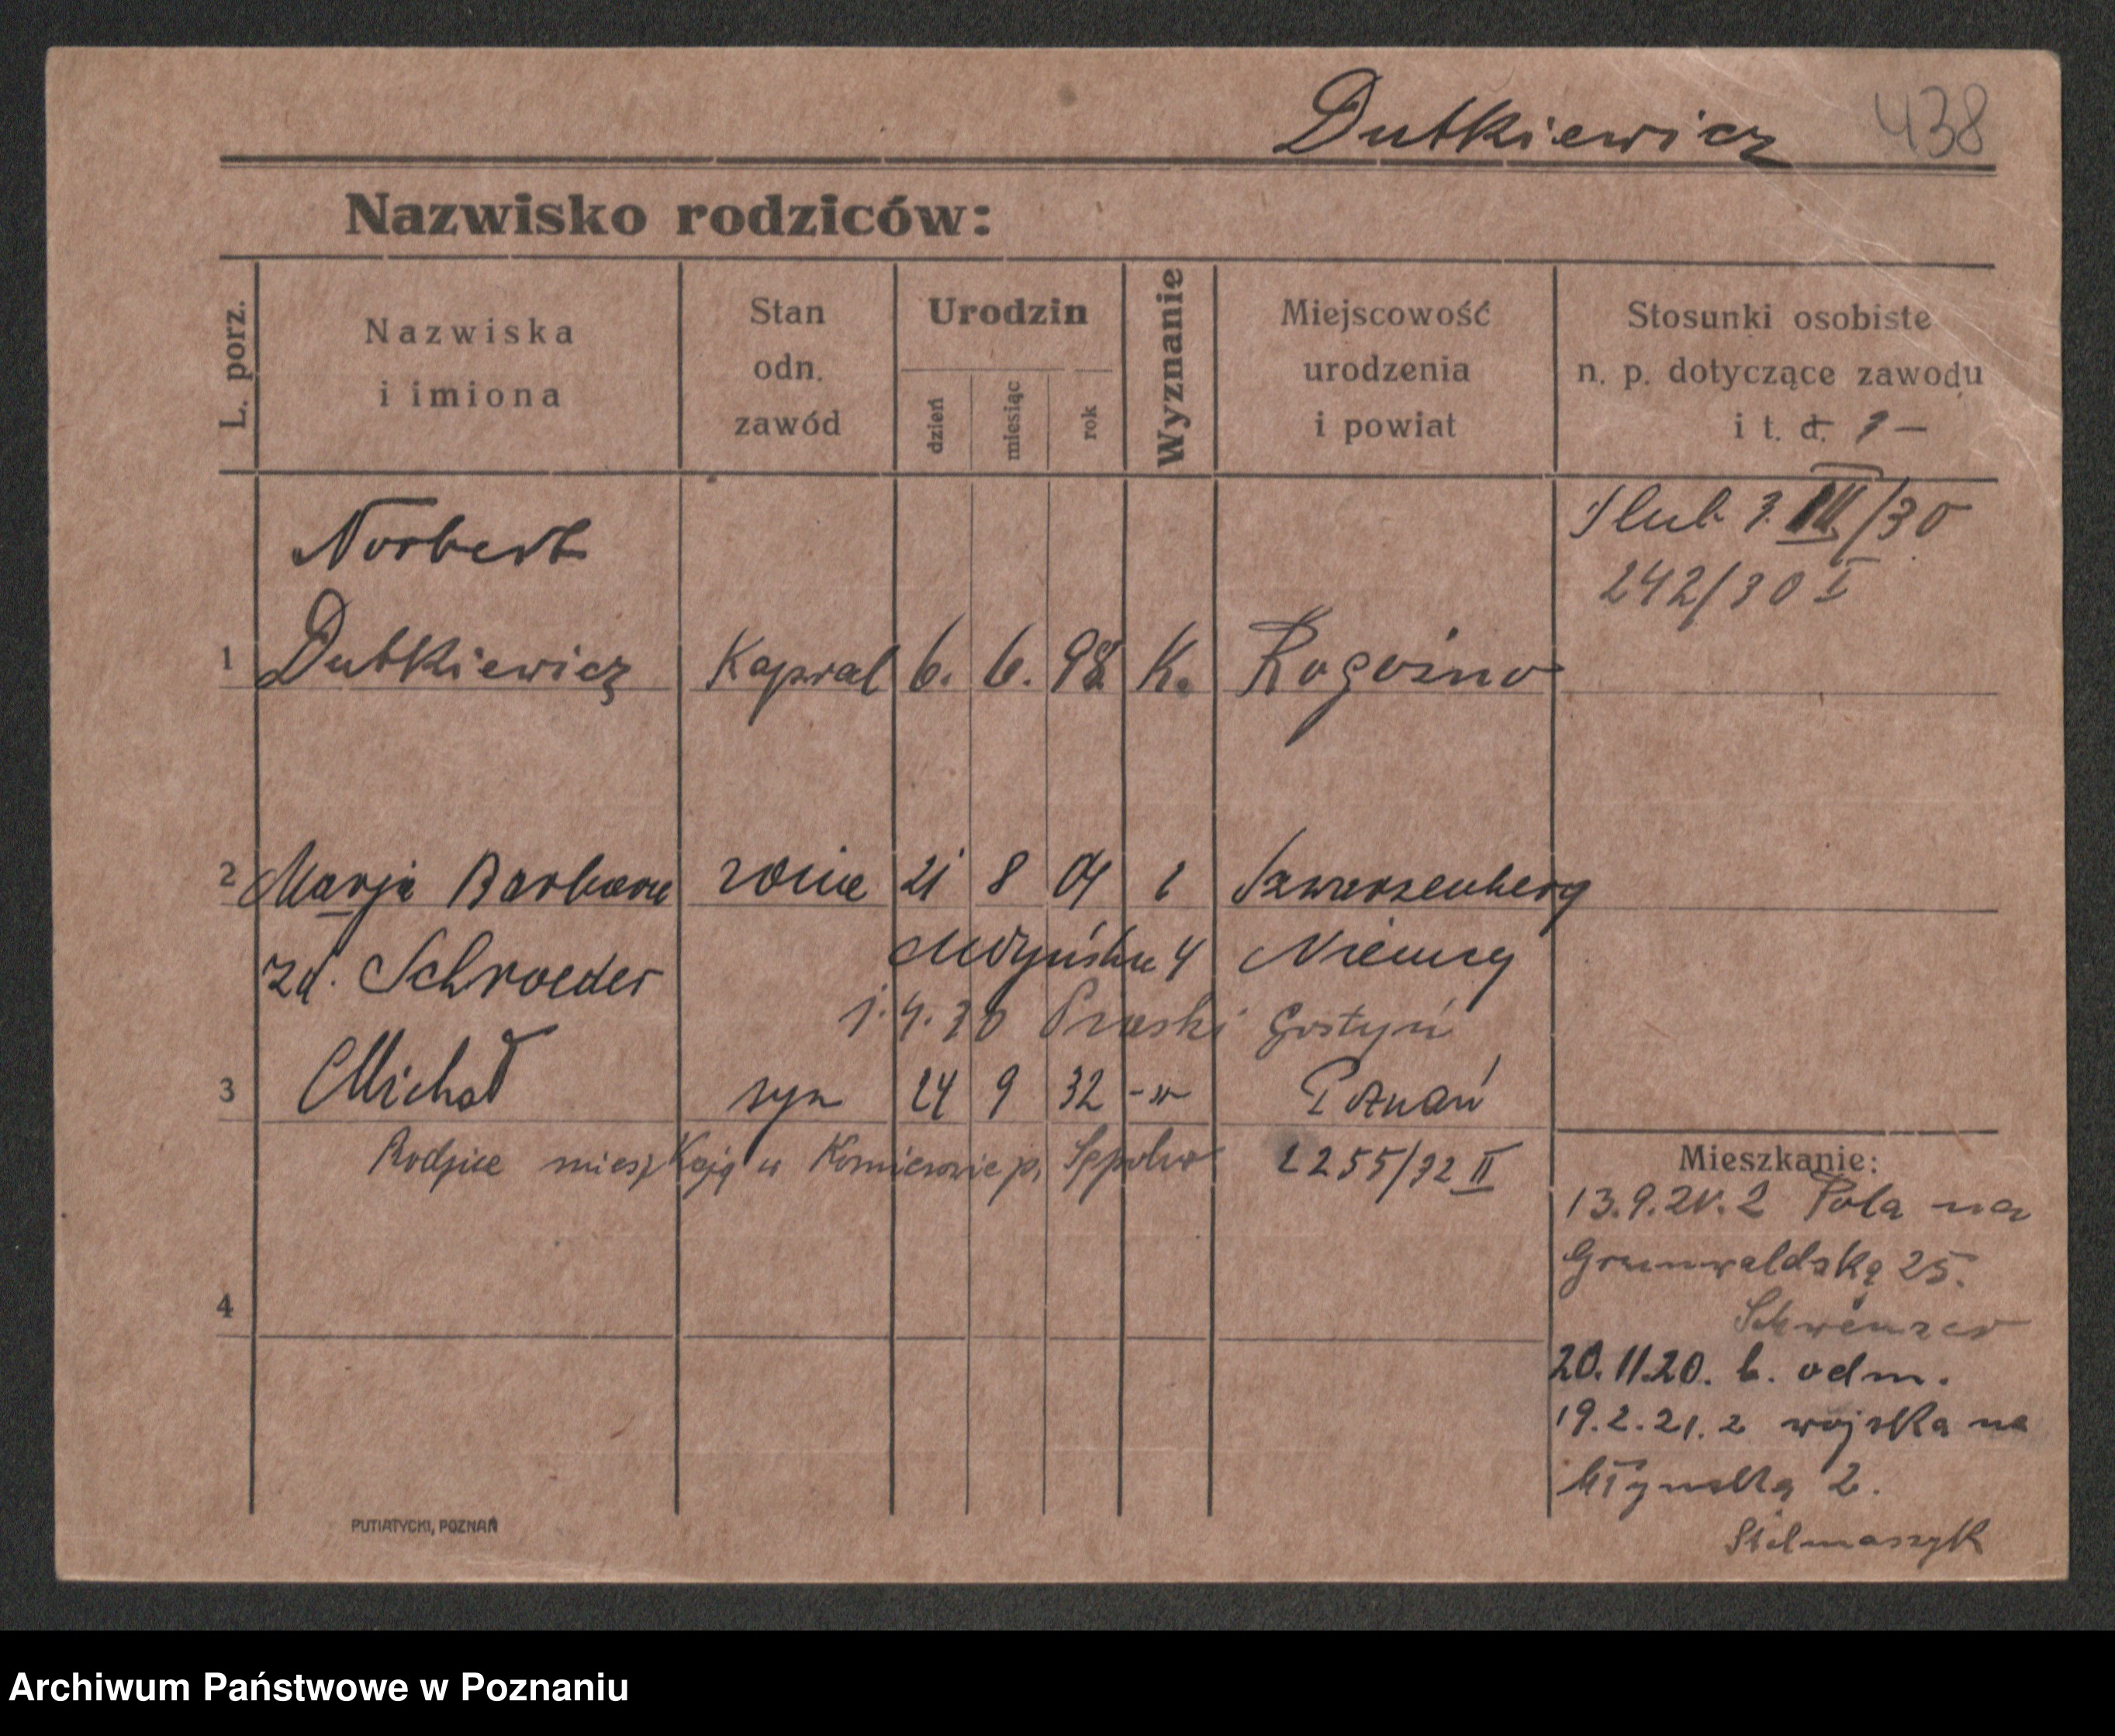 Dutkiewicz 438
Nazwisko rodziców:
L. porz.
Nazwiska
i imiona
Stan
odn.
zawód
Urodzin
dzień
miesiąc
rok
Wyznanie
Miejscowość
urodzenia
i powiat
Stosunki osobiste
n. p. dotyczące zawodu
i t. d.
Norbert
Ślub 3. III/30
242/30 I
1 Dutkiewicz Kapral 6. 6. 98 K. Rogoźno
2 Marja Barbara żona 21 8 04 Szwarzenberg
zd. Schroeder Młyńska 4 Niemcy
1.4.30 Piaski Gostyń
3 Michał syn 24 9 32 -"- Poznań
Rodzice mieszkają w p. 2255/32 II
Mieszkanie:
13.9.20. z Pola na
Grunwaldską 25.
20.11.20. b. odm.
4
19.2.21. z wojska na
Młynską 2.
Stelmaszyk
PUTIATYCKI, POZNAŃ
Archiwum Państwowe w Poznaniu